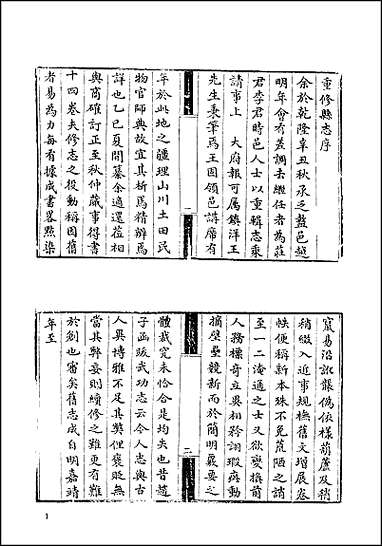 重修縣志序
余於乾隆辛丑秋承乏盩邑越
明年會有差調去繼任者爲莊
君李君時邑人士以重輯志乘
請事上　大府報可屬鎮洋王
先生秉筆爲王固領邑講席有
年於此地之疆理山川土田民
物官師典故宜其析爲精辨爲
詳也乙巳夏間纂余適還莅相
與商確訂正至秋仲蕆事得書
十四卷夫修志之役動稱因舊
者易爲力每有據成書畧㸃染
竄易沿訛襲僞依樣葫蘆及稍
稍綴入近事規撫舊文增展卷
帙便稱新本殊不免荒陋之誚
至一二淹通之士又欲變換前
人務標奇立異相矜詡瑕疵動
摘壁壘競新而於簡明嚴要之
體裁究未恰合是均失也昔趙
子函跋武功志云今人志與古
人異博雅不足其弊俚褒貶無
當其弊妄則續修之難更有難
於創也審矣舊志成自明嘉靖
年至
1